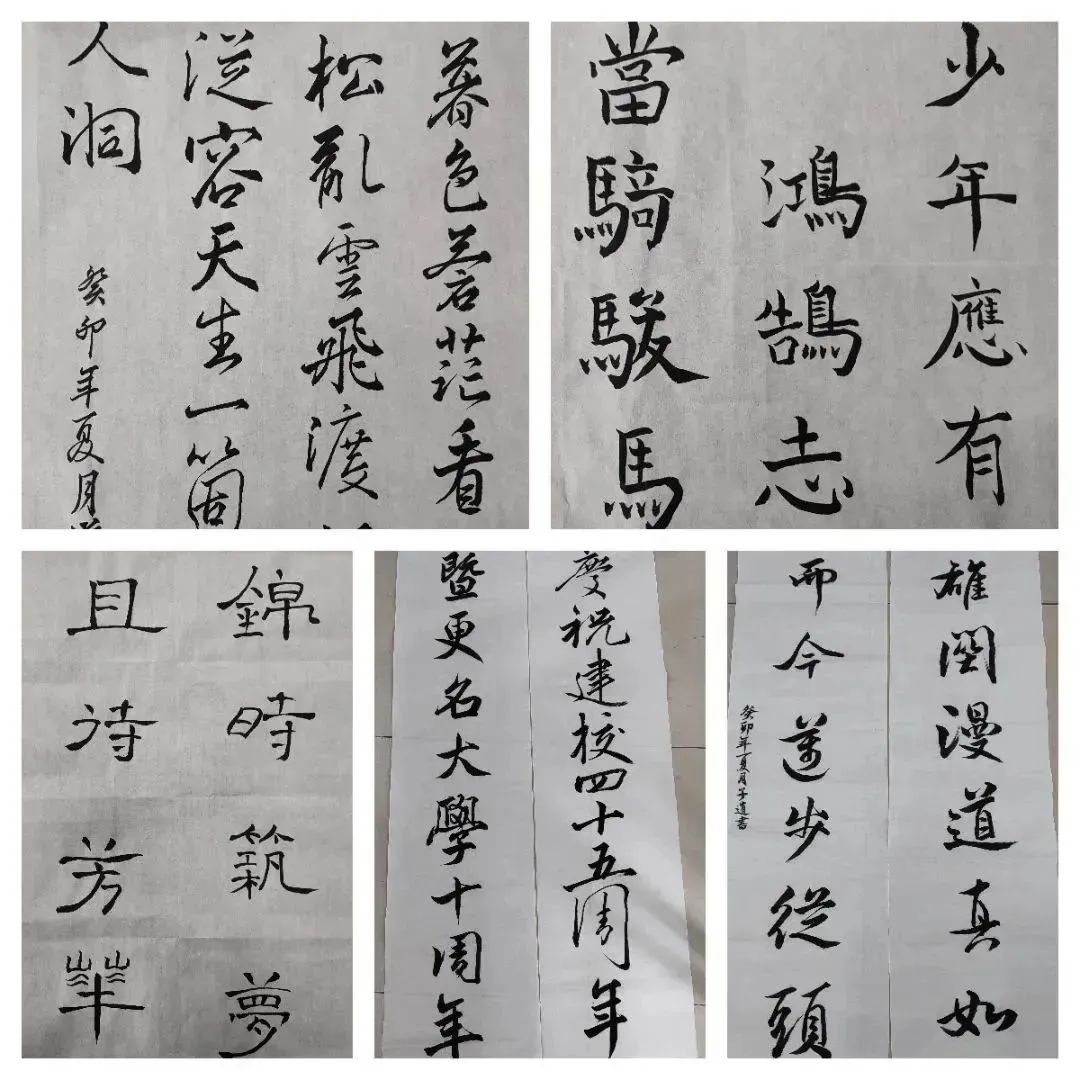 暮色蒼茫看
松亂雲飛渡
從容天生一箇
人洞
癸卯年夏月
少年應有
鴻鵠志
當騎駿馬
錦時築夢
且待芳華
慶祝建校四十五周年
暨更名大學十周年
雄關漫道真如
而今邁步從頭
癸卯年夏月子書